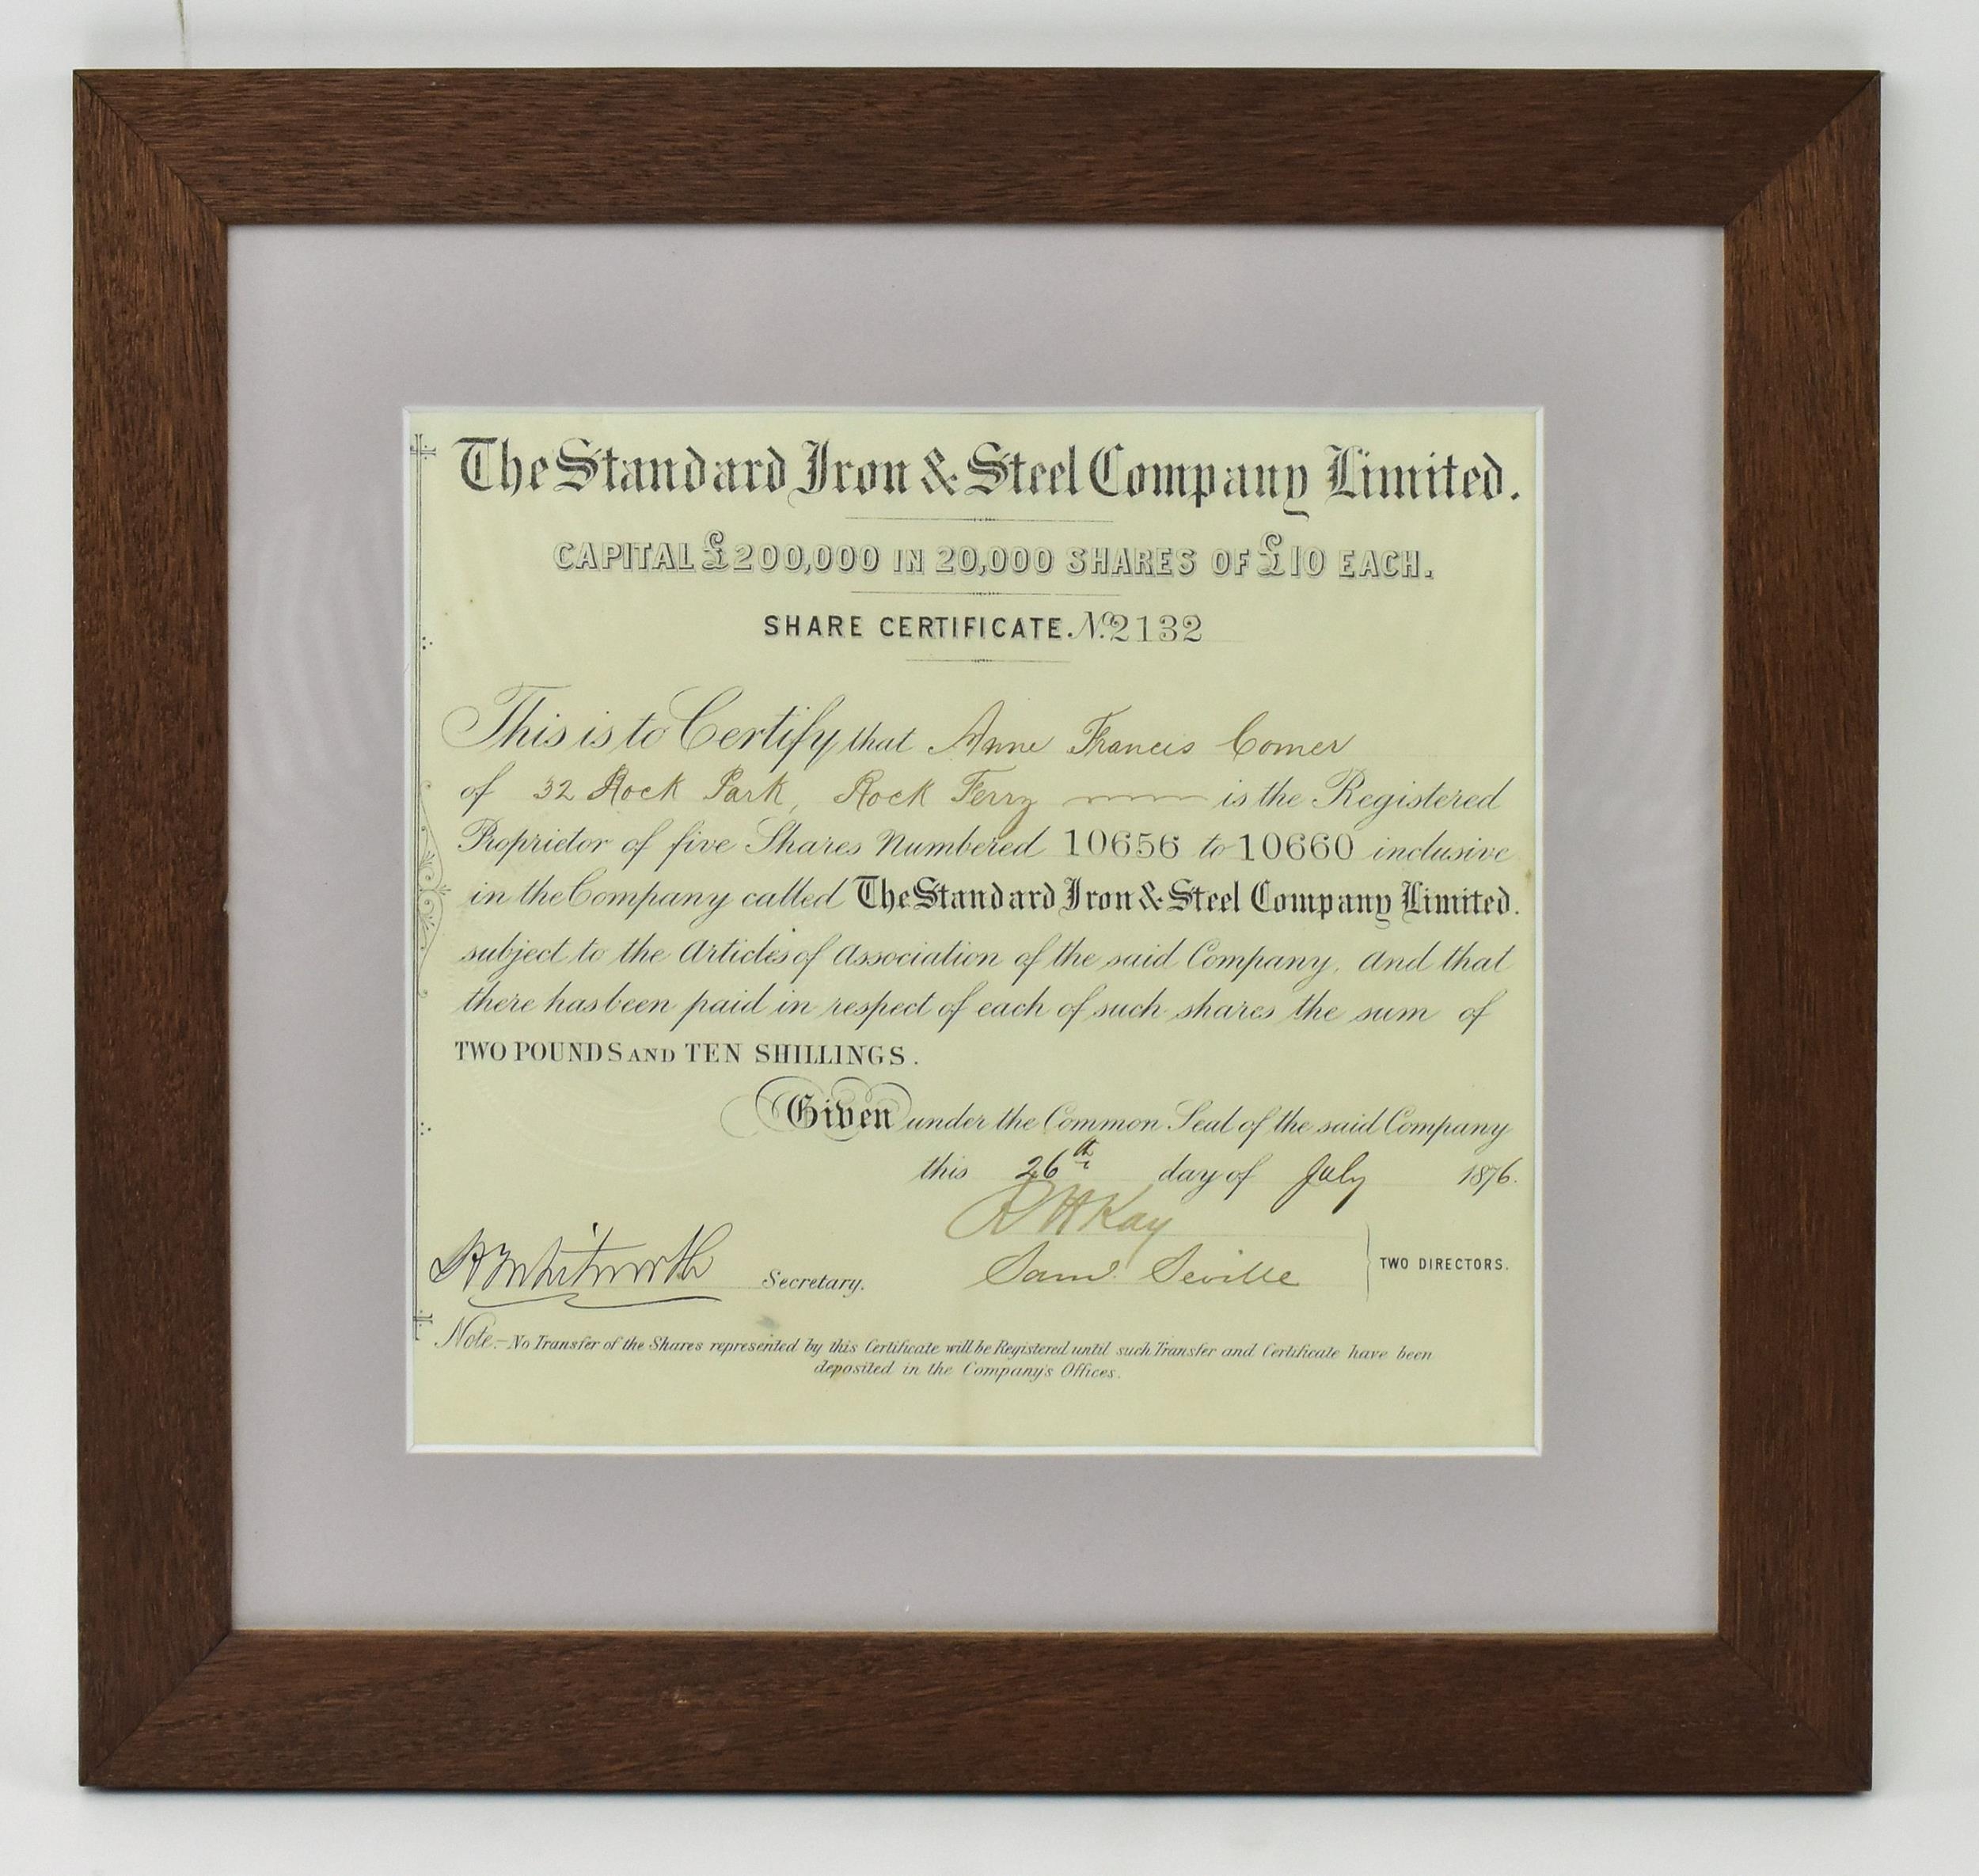 The Standard Iron & Steel Company Limited.
CAPITAL £200,000 IN 20,000 SHARES OF £10 EACH.
SHARE CERTIFICATE. No. 2132
This is to Certify that Anne Francis Comer
of 32 Rock Park, Rock Ferry is the Registered
Proprietor of five Shares Numbered 10656 to 10660 inclusive
in the Company called The Standard Iron & Steel Company Limited.
subject to the Articles of Association of the said Company, and that
there has been paid in respect of each of such shares the sum of
TWO POUNDS AND TEN SHILLINGS.
Given under the Common Seal of the said Company
this 26th day of July 1876.
R H Kay
Whitworth Secretary. Saml. Seville TWO DIRECTORS.
Note.—No Transfer of the Shares represented by this Certificate will be Registered until such Transfer and Certificate have been
deposited in the Company's Offices.